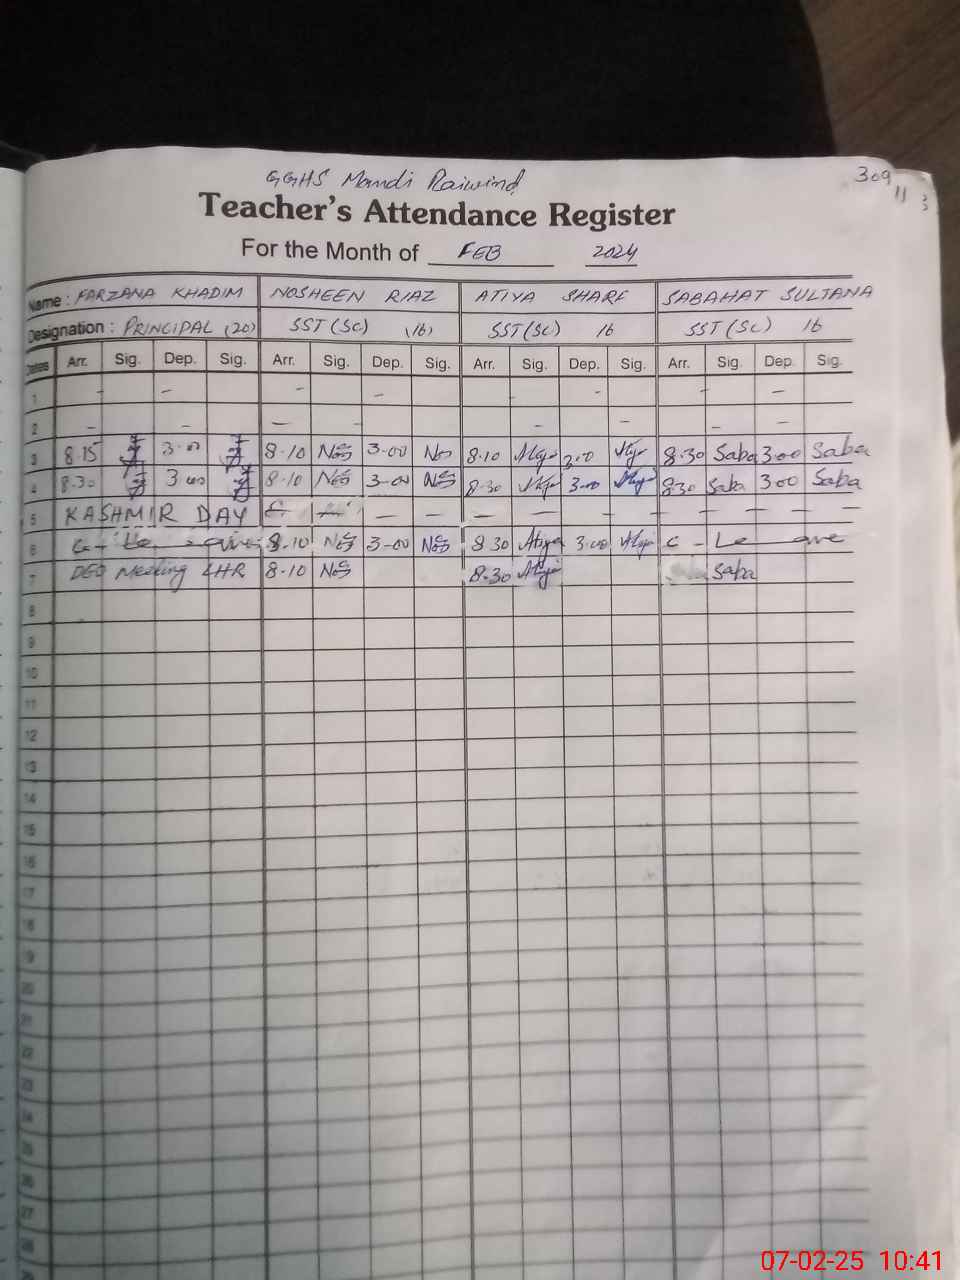 GGHS Mandi Raiwind
309
11 3
Teacher's Attendance Register
For the Month of FEB 2024
Name : FARZANA KHADIM NOSHEEN RIAZ ATIYA SHARF SABAHAT SULTANA
Designation : PRINCIPAL (20) SST (SC) (16) SST (SC) 16 SST (SC) 16
Dates Arr. Sig. Dep. Sig. Arr. Sig. Dep. Sig. Arr. Sig. Dep. Sig. Arr. Sig. Dep. Sig.
1 - - - - - - - -
2 - - - - - - - -
3 8.15 3.00 8.10 Nos 3-00 Nos 8.10 3.00 8.30 Saba 3.00 Saba
4 8.30 3.00 8.10 Nos 3-00 Nos 8.30 3.00 8.30 Saba 3.00 Saba
5 KASHMIR DAY - - - - - - - -
6 8.10 Nos 3-00 Nos 8.30 Atiya 3.00 C - Le ave
7 DEO Meeting LHR 8.10 Nos 8.30 Saba
8
9
10
11
12
13
14
15
16
17
18
19
20
21
22
23
24
25
26
27
28
07-02-25 10:41